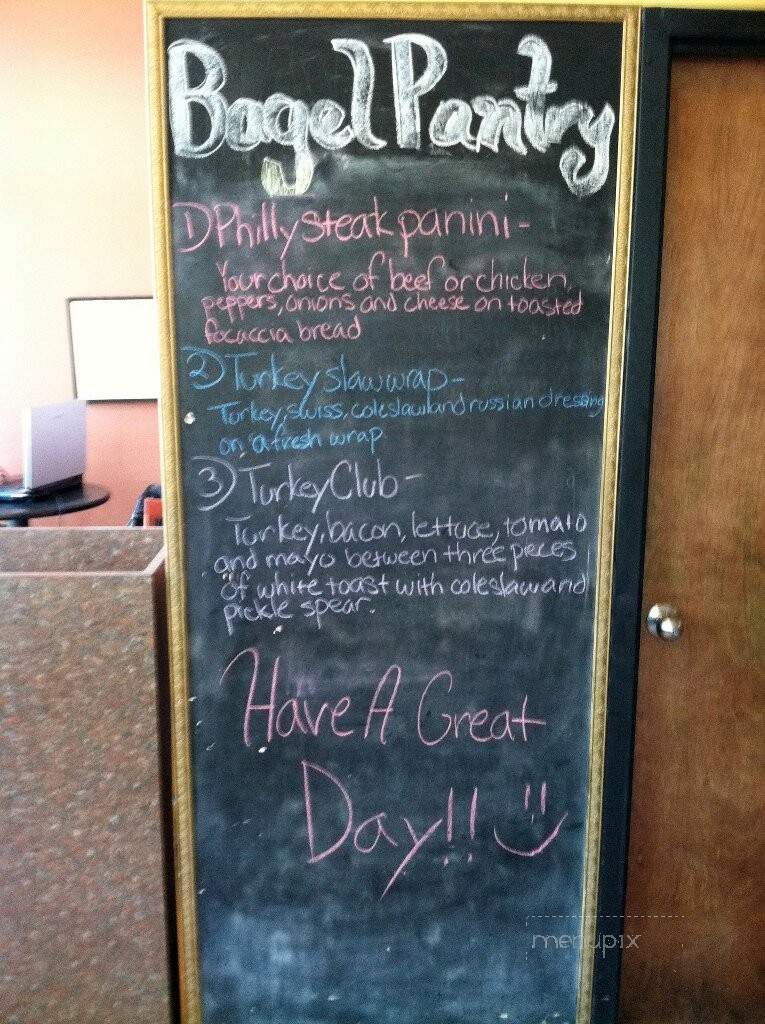 Bagel Pantry
1) Philly steak panini -
Your choice of beef or chicken,
peppers, onions and cheese on toasted
focaccia bread
2) Turkey slaw wrap -
Turkey, swiss, coleslaw and russian dressing
on a fresh wrap
3) Turkey Club -
Turkey, bacon, lettuce, tomato
and mayo between three pieces
of white toast with coleslaw and
pickle spear.
Have A Great
Day!! :)
menupix